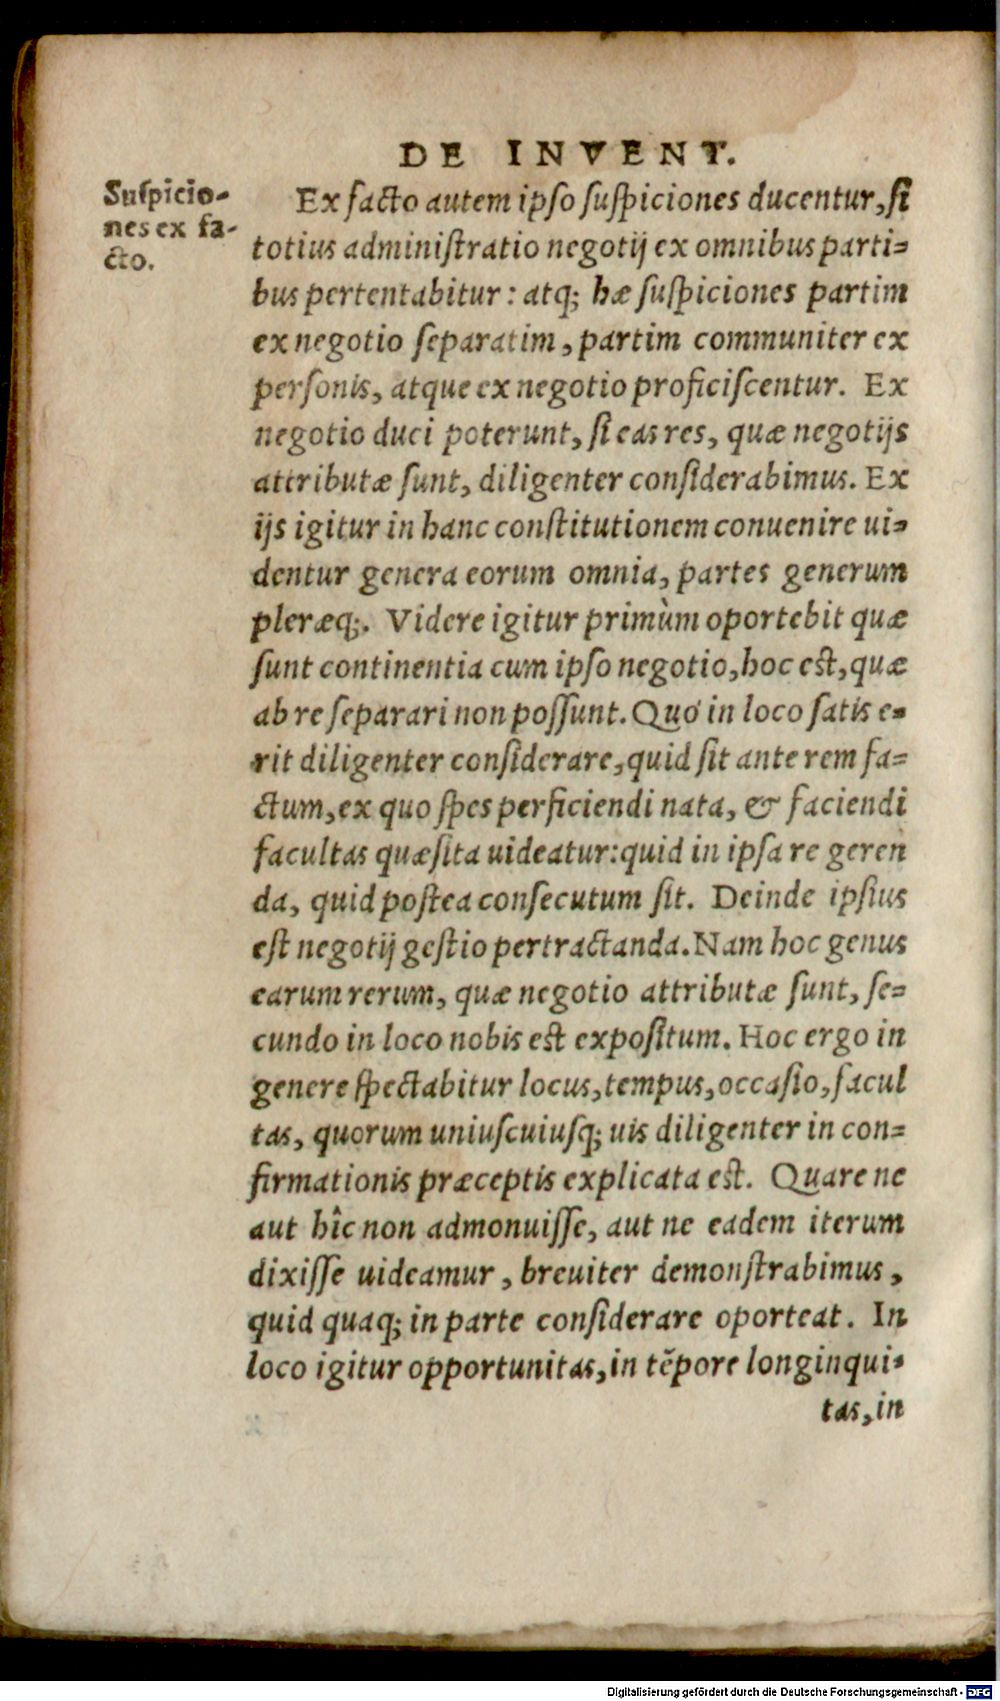 DE INVENT.
Suſpicio-
nes ex fa-
cto.
Ex facto autem ipſo ſuſpiciones ducentur, ſi
totius adminiſtratio negotij ex omnibus parti-
bus pertentabitur: atq; hæ ſuſpiciones partim
ex negotio ſeparatim, partim communiter ex
perſonis, atque ex negotio proficiſcentur. Ex
negotio duci poterunt, ſi eas res, quæ negotijs
attributæ ſunt, diligenter conſiderabimus. Ex
ijs igitur in hanc conſtitutionem conuenire ui-
dentur genera eorum omnia, partes generum
pleræq;. Videre igitur primùm oportebit quæ
ſunt continentia cum ipſo negotio, hoc eſt, quæ
ab re ſeparari non poſſunt. Quó in loco ſatis e-
rit diligenter conſiderare, quid ſit ante rem fa-
ctum, ex quo ſpes perficiendi nata, & faciendi
facultas quæſita uideatur: quid in ipſa re geren
da, quid poſtea conſecutum ſit. Deinde ipſius
eſt negotij geſtio pertractanda. Nam hoc genus
earum rerum, quæ negotio attributæ ſunt, ſe-
cundo in loco nobis eſt expoſitum. Hoc ergo in
genere ſpectabitur locus, tempus, occaſio, facul
tas, quorum uniuſcuiuſq; uis diligenter in con-
firmationis præceptis explicata eſt. Quare ne
aut hîc non admonuiſſe, aut ne eadem iterum
dixiſſe uideamur, breuiter demonſtrabimus,
quid quaq; in parte conſiderare oporteat. In
loco igitur opportunitas, in tẽpore longinqui-
tas, in
Digitalisierung gefördert durch die Deutsche Forschungsgemeinschaft - DFG